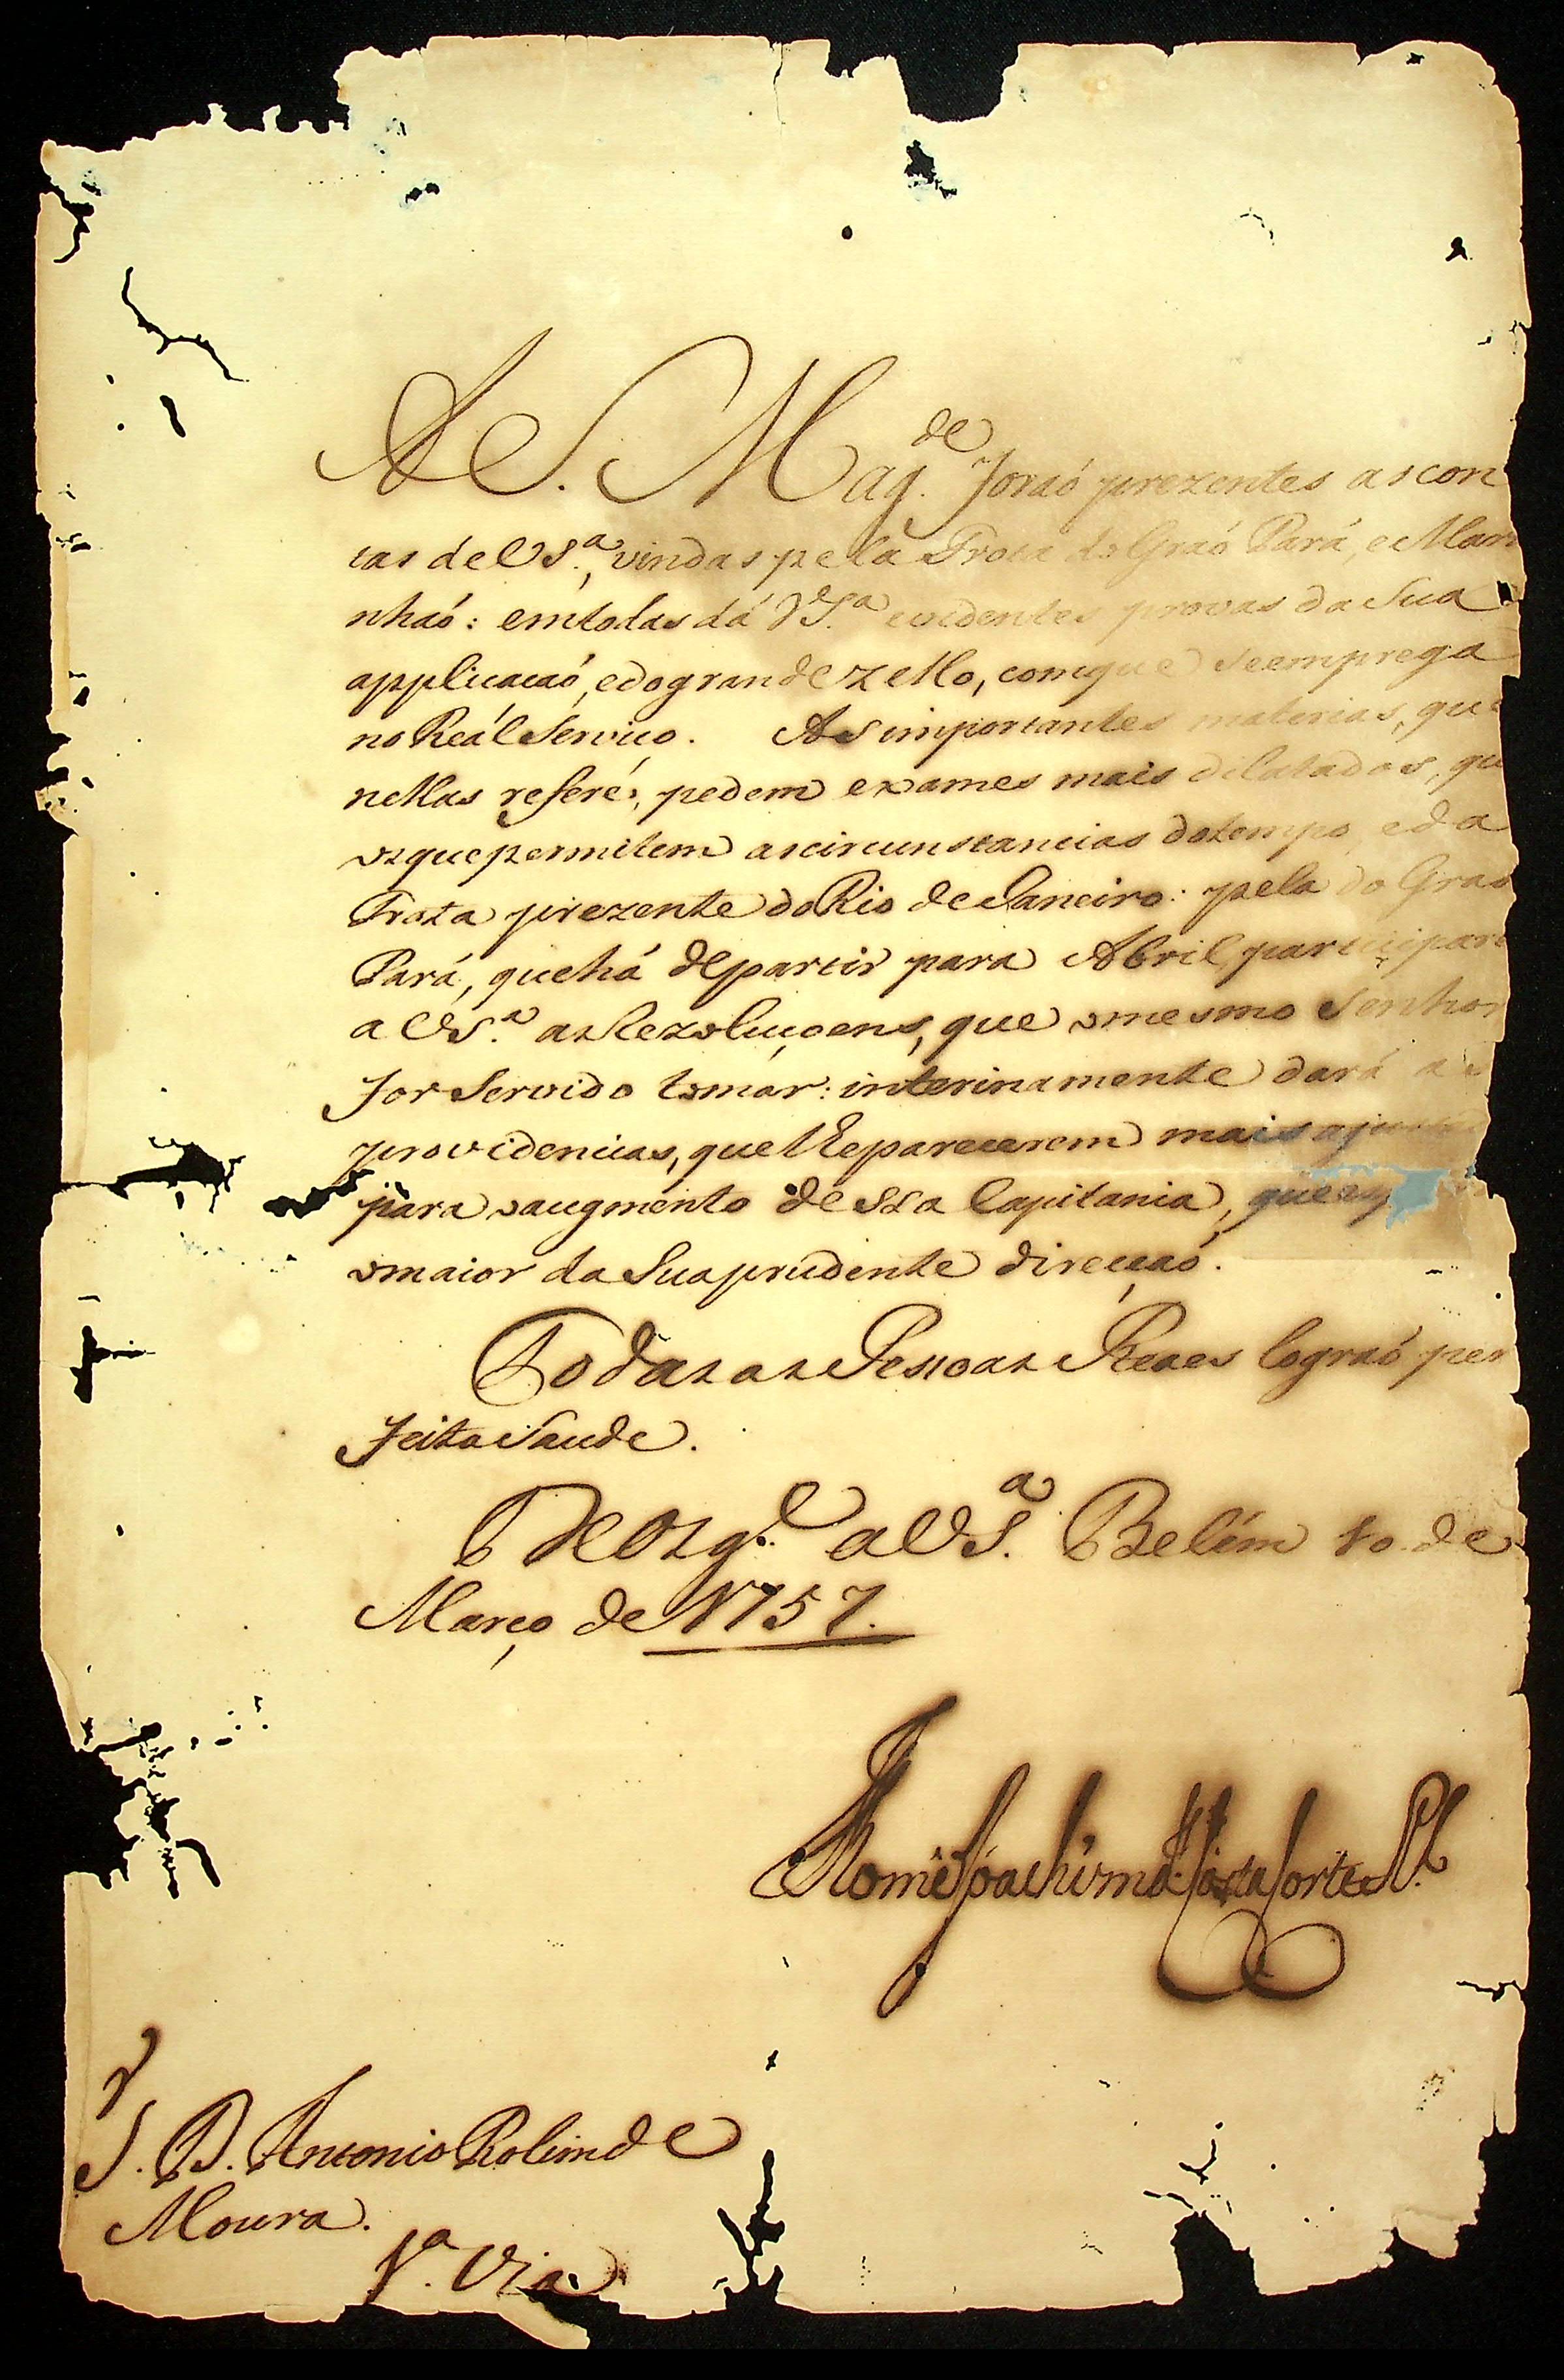 A S. Mag.de foraõ prezentes as con
tas de V S.a, vindas pela Frota do Graõ Pará, e Mara
nhaó: em todas dá V S.a evidentes provas da Sua
applicaçaó, e do grande zello, com que se emprega
no Reál Serviço. As importantes materias, que
nellas refere, pedem exames mais dilatados, que
os que permitem as circunstancias do tempo, e da
Frota prezente do Rio de Janeiro: pela do Graó
Pará, que há de partir para Abril, participar
a V S.a as Rezoluçoens, que o mesmo Senhor
for Servido tomar: interinamente dará as
providencias, que lhe parecerem mais
para o augmento dessa Capitania, que
o maior da Sua prudente direcçaó.
Todas as Pessoas Reaes lograó per
feita Saude.
Deos g.e a V S.a Belém 10 de
Março de 1757.
Thomé Joachim da Costa Corte R.l
S.r D. Antonio Rolim de
Moura.
1.a Via